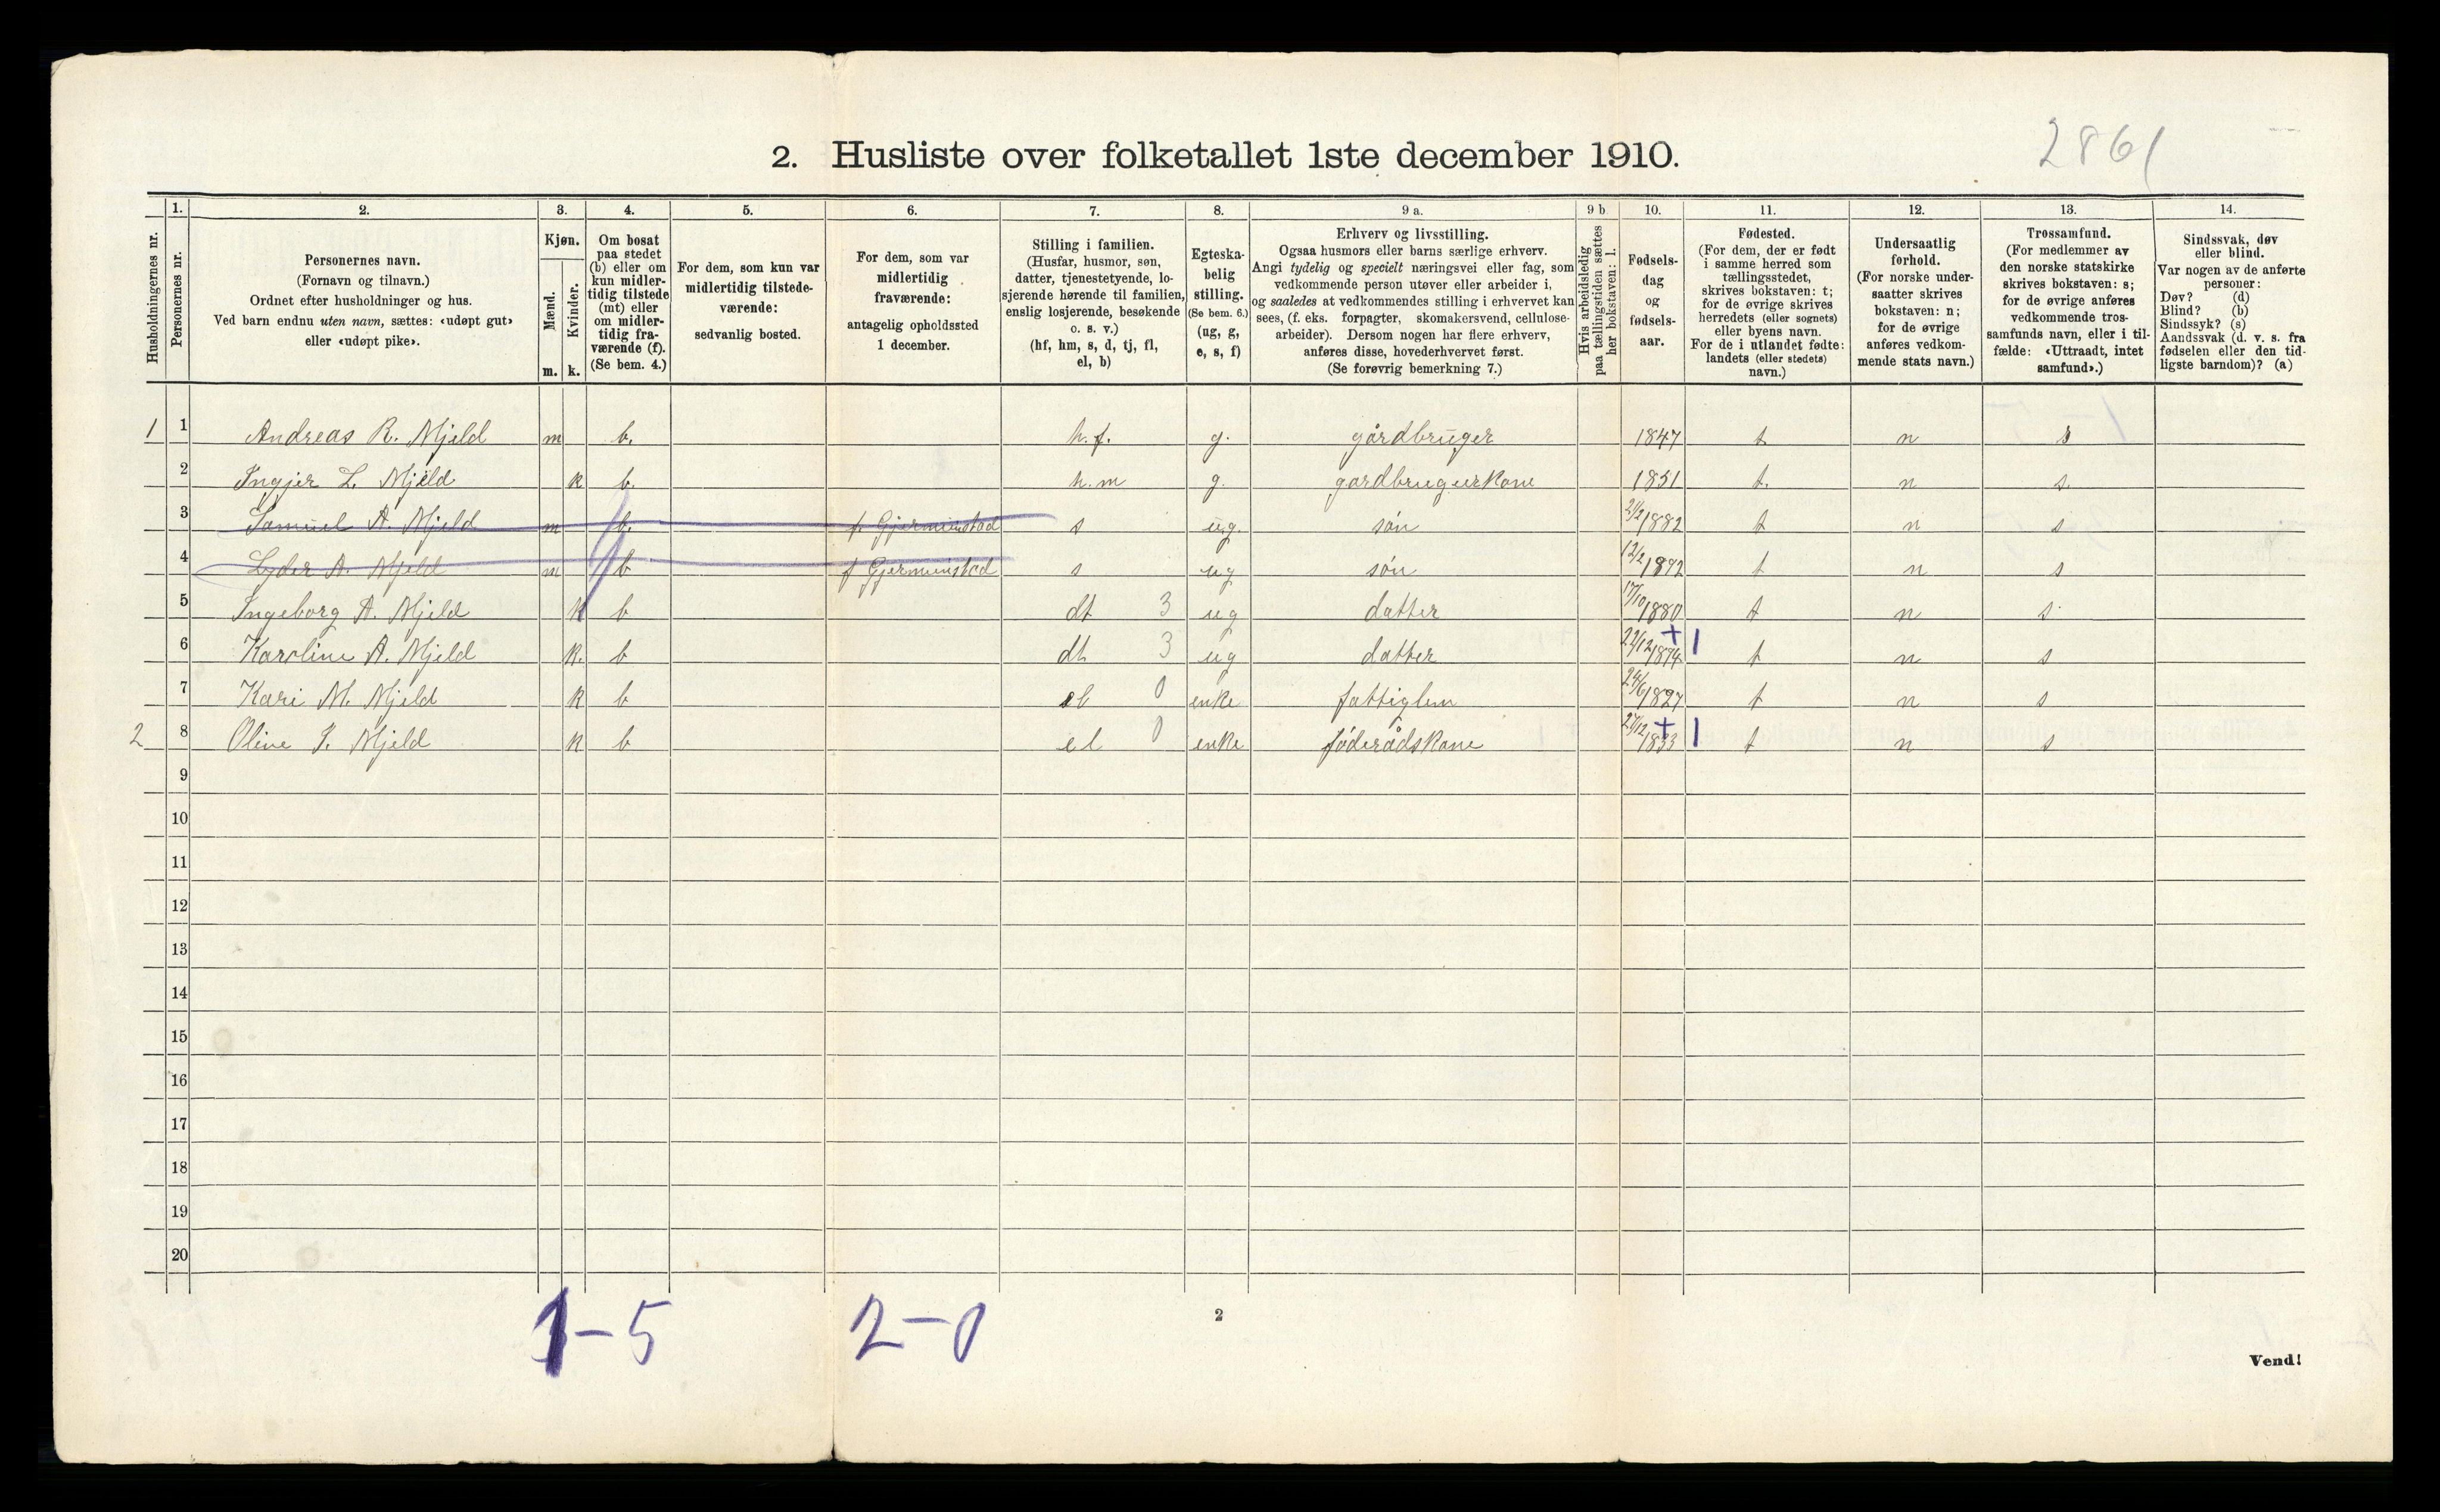 2861
2. Husliste over folketallet 1ste december 1910.
1. 2. 3. 4. 5. 6. 7. 8. 9 a. 9 b 10. 11. 12. 13. 14.
Husholdningernes nr.
Personernes nr.
Personernes navn.
(Fornavn og tilnavn.)
Ordnet efter husholdninger og hus.
Ved barn endnu uten navn, sættes: «udøpt gut»
eller «udøpt pike».
Kjøn.
Mænd.
Kvinder.
m. k.
Om bosat
paa stedet
(b) eller om
kun midler-
tidig tilstede
(mt) eller
om midler-
tidig fra-
værende (f).
(Se bem. 4.)
For dem, som kun var
midlertidig tilstede-
værende:
sedvanlig bosted.
For dem, som var
midlertidig
fraværende:
antagelig opholdssted
1 december.
Stilling i familien.
(Husfar, husmor, søn,
datter, tjenestetyende, lo-
sjerende hørende til familien,
enslig losjerende, besøkende
o. s. v.)
(hf, hm, s, d, tj, fl,
el, b)
Egteska-
belig
stilling.
(Se bem. 6.)
(ug, g,
e, s, f)
Erhverv og livsstilling.
Ogsaa husmors eller barns særlige erhverv.
Angi tydelig og specielt næringsvei eller fag, som
vedkommende person utøver eller arbeider i,
og saaledes at vedkommendes stilling i erhvervet kan
sees, (f. eks. forpagter, skomakersvend, cellulose-
arbeider). Dersom nogen har flere erhverv,
anføres disse, hovederhvervet først.
(Se forøvrig bemerkning 7.)
Hvis arbeidsledig
paa tællingstiden sættes
her bokstaven: l.
Fødsels-
dag
og
fødsels-
aar.
Fødested.
(For dem, der er født
i samme herred som
tællingsstedet,
skrives bokstaven: t;
for de øvrige skrives
herredets (eller sognets)
eller byens navn.
For de i utlandet fødte:
landets (eller stedets)
navn.)
Undersaatlig
forhold.
(For norske under-
saatter skrives
bokstaven: n;
for de øvrige
anføres vedkom-
mende stats navn.)
Trossamfund.
(For medlemmer av
den norske statskirke
skrives bokstaven: s;
for de øvrige anføres
vedkommende tros-
samfunds navn, eller i til-
fælde: «Uttraadt, intet
samfund».)
Sindssvak, døv
eller blind.
Var nogen av de anførte
personer:
Døv? (d)
Blind? (b)
Sindssyk? (s)
Aandssvak (d. v. s. fra
fødselen eller den tid-
ligste barndom)? (a)
1 1 Andreas R. Mjeld m b. h.f. g. gårdbruger 1847 t n s
2 Ingjer L. Mjeld k b. h.m g. gardbrugerkone 1851 t. n s
3 Samuel A. Mjeld m b. f. s ug. søn 21/2 1882 t n s
4 Lyder A. Mjeld m b f s ug søn 12/2 1892 t n s
5 Ingeborg A. Mjeld k b dt 3 ug datter 17/10 1880 t n s
6 Karoline A. Mjeld k. b dt 3 ug datter + 1 t n s
7 Kari M. Mjeld k b el 0 enke fattiglem 24/6 1827 t n s
2 8 Oline J. Mjeld k b el 0 enke føderådskone 27/12 1833 + 1 t n s
9
10
11
12
13
14
15
16
17
18
19
20
1-5 2-0
2
Vend!